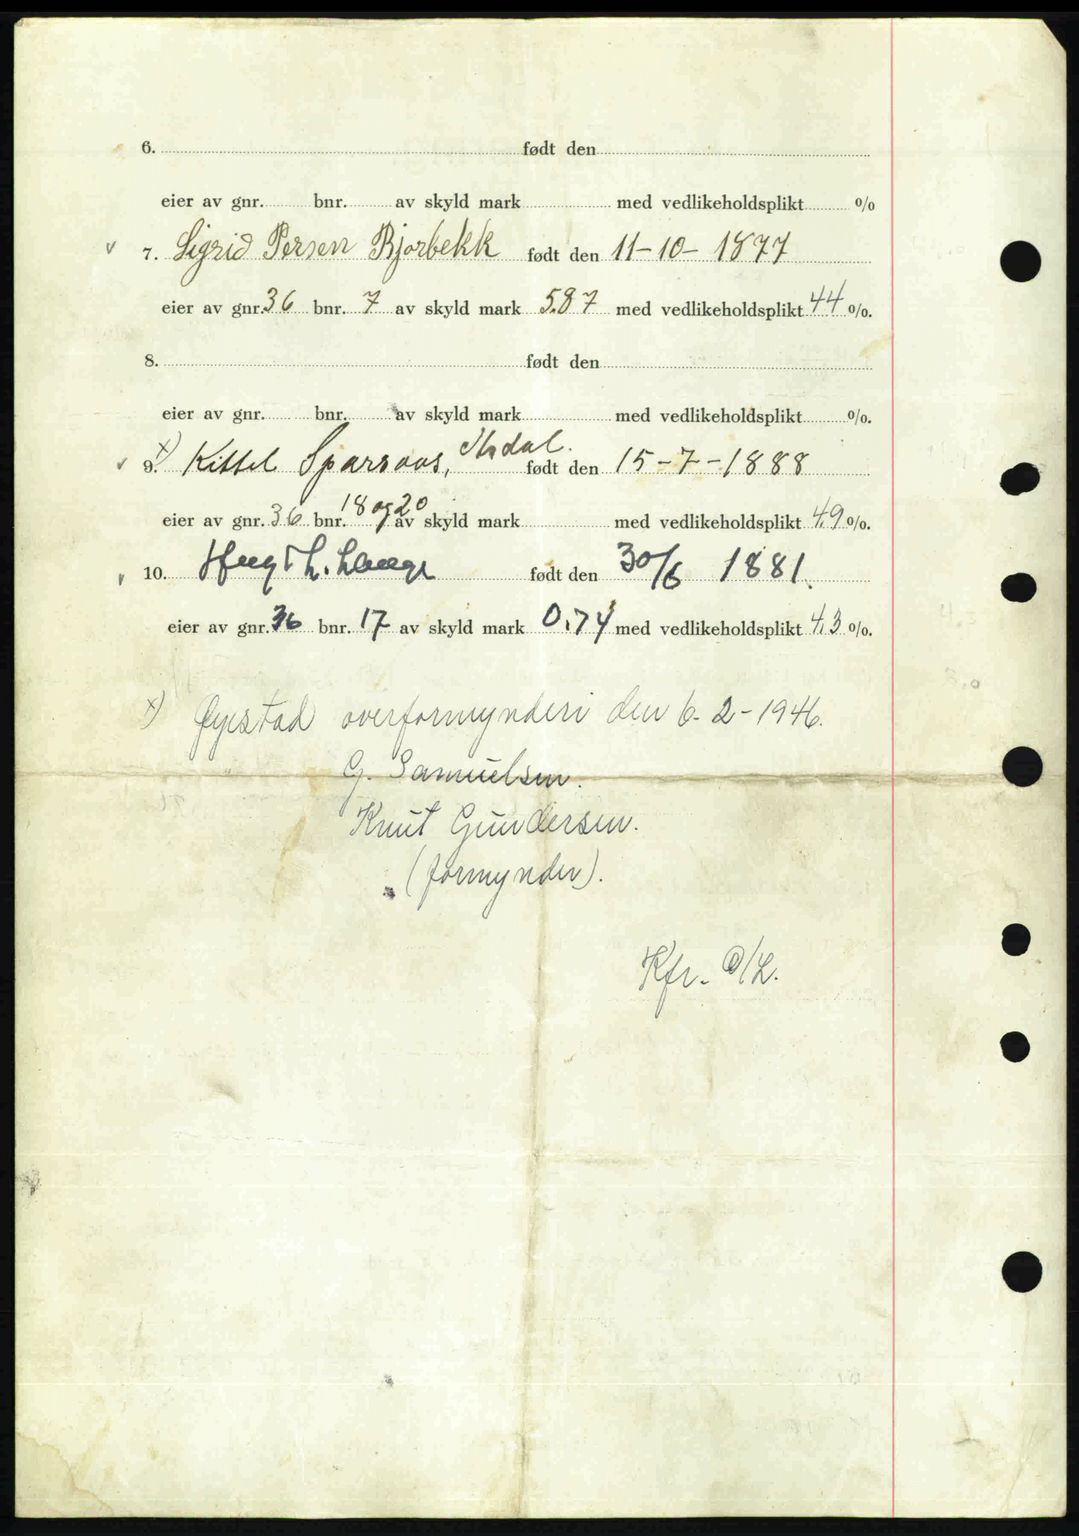 6. født den
eier av gnr. bnr. av skyld mark med vedlikeholdsplikt %
7. Sigrid Persen Bjorbekk født den 11-10-1877
eier av gnr. 36 bnr. 7 av skyld mark 5.87 med vedlikeholdsplikt 44 %.
8. født den
eier av gnr. bnr. av skyld mark med vedlikeholdsplikt %.
x) 9. Kittel Sparsaas, født den 15-7-1888
eier av gnr. 36 bnr. 18 og 20 av skyld mark med vedlikeholdsplikt 4.9 %.
10. født den 30/6 1881.
eier av gnr. 36 bnr. 17 av skyld mark 0.74 med vedlikeholdsplikt 4.3 %.
x) Øyestad overformynderi den 6-2-1946.
G. Samuelsen.
Knut Gundersen.
(formynder).
Kfr. O/L.